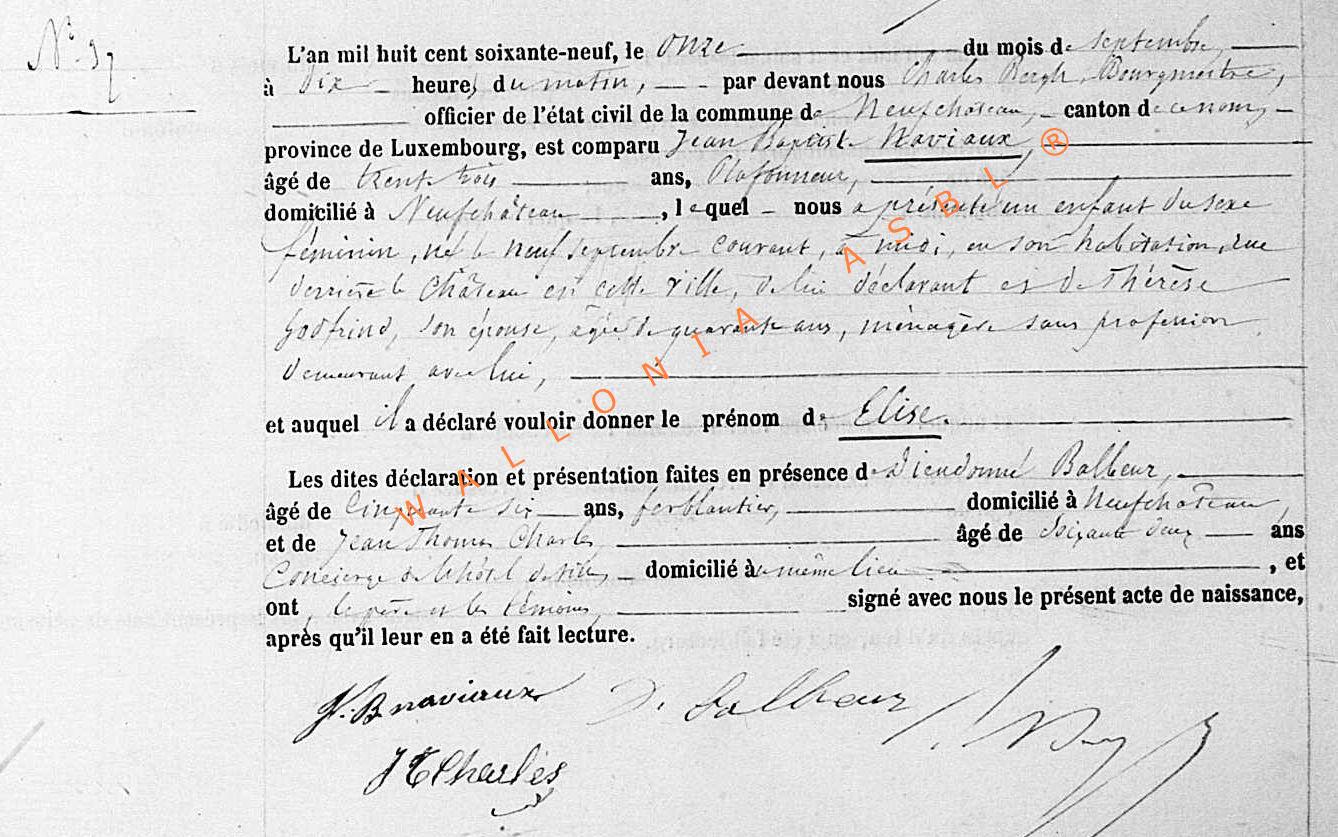 N° 37
L'an mil huit cent soixante-neuf, le onze du mois de septembre,
à dix heures du matin, par devant nous Charles Bergh, Bourgmestre,
officier de l'état civil de la commune de Neufchâteau, canton de ce nom,
province de Luxembourg, est comparu Jean Baptiste Naviaux,
âgé de trente trois ans, Plafonneur,
domicilié à Neufchâteau, lequel nous a présenté un enfant du sexe
féminin, né le neuf septembre courant, à midi, en son habitation, rue
derrière le Château en cette ville, de lui déclarant et de Thérèse
Godfrind, son épouse, agée de quarante ans, ménagère sans profession
demeurant avec lui,
et auquel il a déclaré vouloir donner le prénom de Elise.
Les dites déclaration et présentation faites en présence de Dieudonné Balbeur,
âgé de cinquante six ans, ferblantier, domicilié à Neufchâteau,
et de Jean Thomas Charles, âgé de soixante deux ans
Concierge de l'hôtel de ville, domicilié au même lieu, et
ont le père et les témoins, signé avec nous le présent acte de naissance,
après qu'il leur en a été fait lecture.
J. B naviaux D. Balbeur
J T Charles
WALLONIA ASBL ®